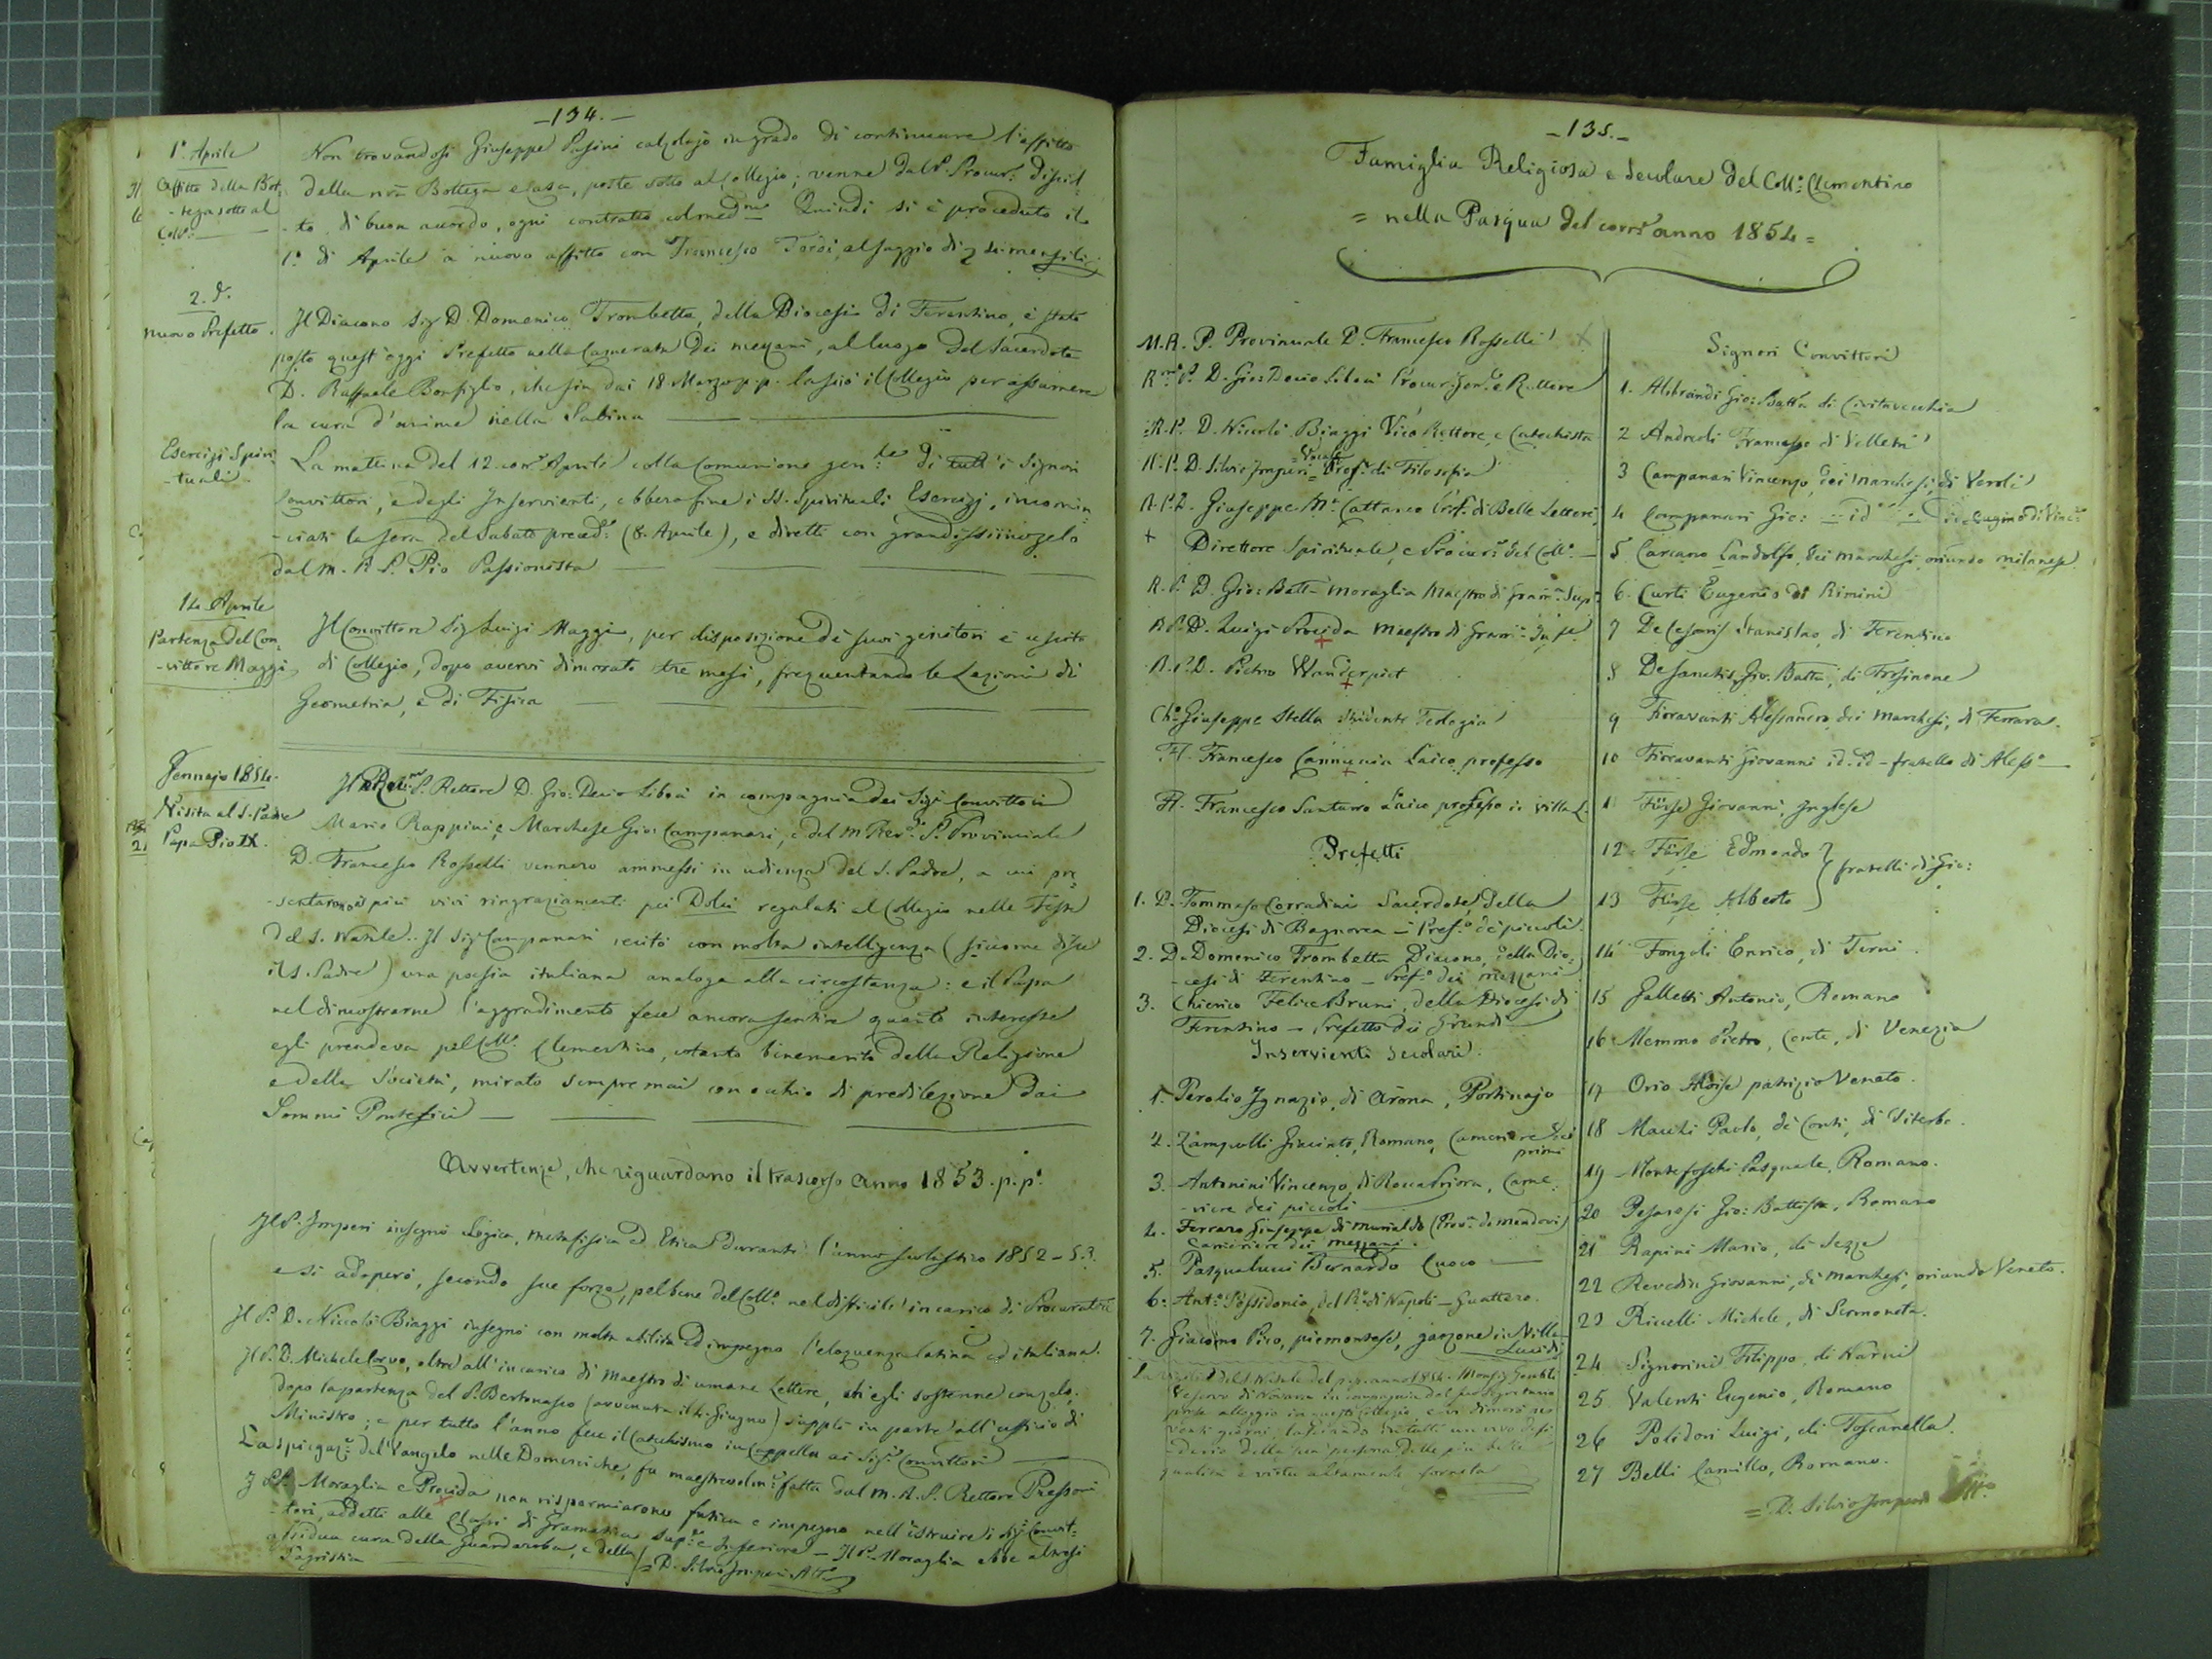 -134.-
1.° Aprile
Affitto della Bot-
-tega sotto al
Coll.°
Non trovandosi Giuseppe Pasini calzolajo in grado di continuare l'affitto
della nrã Bottega e casa, poste sotto al Collegio; venne dal P. Procur.e disciol-
-to, di buon accordo, ogni contratto col med.mo Quindi si è proceduto il
1.° di Aprile a nuovo affitto con Francesco al saggio di mensili.
2. d.°
Nuovo Prefetto.
Il Diacono Sig D. Domenico Trombetta, della Diocesi di Ferentino, è stato
posto quest'oggi Prefetto nella Camerata dei mezzani, al luogo del Sacerdote
D. Raffaele Bonfiglio, che fin dai 18 Marzo p.p. lasciò il Collegio per assumere
la cura d'anime nella Sabina
Esercizi Spiri-
-tuali.
La mattina del 12 corr.e Aprile colla Comunione gen.le di tutt'i Signori
Convittori, e degli Inservienti, ebbero fine i SS. Spirituali Esercizj, incomin-
-ciati la sera del Sabato preced.e (8. Aprile), e diretti con grandissimo zelo
dal M. R. P. Pio Passionista
14 Aprile
Partenza del Con-
-vittore Maggi
Il Convittore Sig Luigi Maggi, per disposizione de' suoi genitori è uscito
di Collegio, dopo avervi dimorato tre mesi, frequentando le Lezioni di
Geometria, e di Fisica
Gennajo 1854.
Visita al S. Padre
Papa Pio IX.
Il P. Rettore D. Gio: Decio Libois in compagnia dei Sig.i Convittori
Mario Rappini, e Marchese Gio: Campanari, e del M. Rev.do P. Provinciale
D. Francesco Rosselli vennero ammessi in udienza del S. Padre, a cui pre-
-sentarono i più vivi ringraziamenti pei Dolci regalati al Collegio nelle Feste
del S. Natale. Il Sig Campanari recitò con molta intelligenza (siccome disse
il S. Padre) una poesia italiana analoga alla circostanza: e il Papa
nel dimostrarne l'aggradimento fece ancora sentire quanto interesse
egli prendeva pel Coll.° Clementino, cotanto benemerito della Religione
e della Società, mirato sempre mai con occhio di predilezione dai
Sommi Pontefici
Avvertenze, che riguardano il trascorso anno 1853. p.p.°
Il P. Imperi insegnò Logica, Metafisica ed Etica durante l'anno scolastico 1852-53.
e si adoperò, secondo sue forze, pel bene del Coll.° nel difficile incarico di Procuratore
Il P. D. Niccolò Biaggi insegnò con molta abilità ed impegno l'eloquenza latina ed italiana.
Il P. D. Michele Corvo, oltre all'incarico di Maestro di umane Lettere, ch'egli sostenne con zelo,
dopo la partenza del P. Bertonasco (avvenuta il 4. Giugno) supplì in parte all'ufficio di
Ministro; e per tutto l'anno fece il Catechismo in Cappella ai Sig.i Convittori
La spiegaz.e del Vangelo nelle Domeniche, fu maestrevolm.e fatta dal M. R. P. Rettore
I PP. Moraglia e Procida non risparmiarono fatica e impegno nell'istruire i Sig.i Convit-
-tori, addetti alle Classi di Gramatica Sup.e e Inferiore - Il P. Moraglia ebbe altresì
assidua cura della Guardaroba, e della
Sagristia
= D. Silvio Imperi Att.°
-135.-
Famiglia Religiosa e Secolare del Coll.° Clementino
= nella Pasqua del corr.e anno 1854 =
M.R. P. Provinciale D. Francesco Rosselli
R.mo P. D. Gio: Decio Libois Procur. Gen.le e Rettore
R. P. D. Niccolò Biaggi Vice Rettore, e Catechista
R. P. D. Silvio Imperi = Vocale = Prof.e di Filosofia
R. P. D. Giuseppe M.a Cattaneo Prof. di Belle Lettere,
+ Direttore Spirituale, e Procur.e del Coll.°
R. P. D. Gio: Batt.a Moraglia Maestro di Gram.ca Sup.e
R. P. D. Luigi Procida Maestro di Gram.ca Inf.e
R. P. D. Pietro Wanderpiet
Ch.° Giuseppe Stella studente Teologia
Fr. Francesco Cannuccia Laico professo
Fr. Francesco Santurro Laico professo in Villa L.
Prefetti
1. D. Tommaso Corradini Sacerdote della
Diocesi di Bagnorea - Pref.° de' piccoli.
2. D. Domenico Trombetta Diacono, della Dio-
-cesi di Ferentino - Pref.° dei mezzani
3. Chierico Felice Bruni, della Diocesi di
Ferentino - Prefetto dei Grandi
Inservienti Secolari.
1. Perolio Ignazio, di Arona, Portinajo
2. Zampolli Giacinto, Romano, Cameriere dei
primi
3. Antonini Vincenzo, di Rocca Priora, Came-
-riere dei piccoli
4. Ferraro Giuseppe di Murialdo (Prov.a di Mondovì)
Cameriere dei mezzani.
5. Pasqualucci Bernardo Cuoco
6. Ant.° Possidonio, del R.° di Napoli - Guattero.
7. Giacomo Pico, piemontese, garzone in Villa
Lucidi
La vigilia del S. Natale del p.p. anno 1854. Monsig Gentili
Vescovo di Novara in compagnia del suo Segretario
prese alloggio in questo Collegio, e vi dimorò
venti giorni, lasciando in tutti un vivo desi-
-derio della sua persona delle più belle
qualità e virtù altamente fornita
Signori Convittori
1. Alibrandi Gio: Batt.a di Civitavecchia
2 Andreoli Francesco di Velletri
3 Campanari Vincenzo, dei Marchesi, di Veroli
4 Campanari Gio: - id - id cugino di Vinc.°
5. Carcano Landolfo, dei Marchesi, oriundo milanese.
6. Curti Eugenio di Rimini
7 De Cesaris Stanislao, di Ferentino
8 De Sanctis Gio: Batta, di Frosinone
9 Fioravanti Alessandro, dei Marchesi, di Ferrara.
10 Fioravanti Giovanni id. id - fratello di Aless.°
11 Fürse Giovanni, Inglese
12. Fürse Edmondo
13 Fürse Alberto
} fratelli di Gio:
14 Fongoli Enrico, di Terni.
15 Galletti Antonio, Romano
16 Memmo Pietro, Conte, di Venezia
17 Orio Aloise patrizio Veneto.
18 Macchi Paolo, de' Conti, di Viterbo.
19 Montefoschi Pasquale, Romano.
20 Pesarosi Gio: Battista, Romano
21 Rapini Mario, di Sezze
22 Revedin Giovanni, di Marchesi, oriundo Veneto.
23 Riccelli Michele, di Sermoneta.
24 Signorini Filippo, di Narni
25. Valenti Eugenio, Romano
26 Polidori Luigi, di Toscanella.
27 Belli Camillo, Romano.
= D. Silvio Imperi Att.°